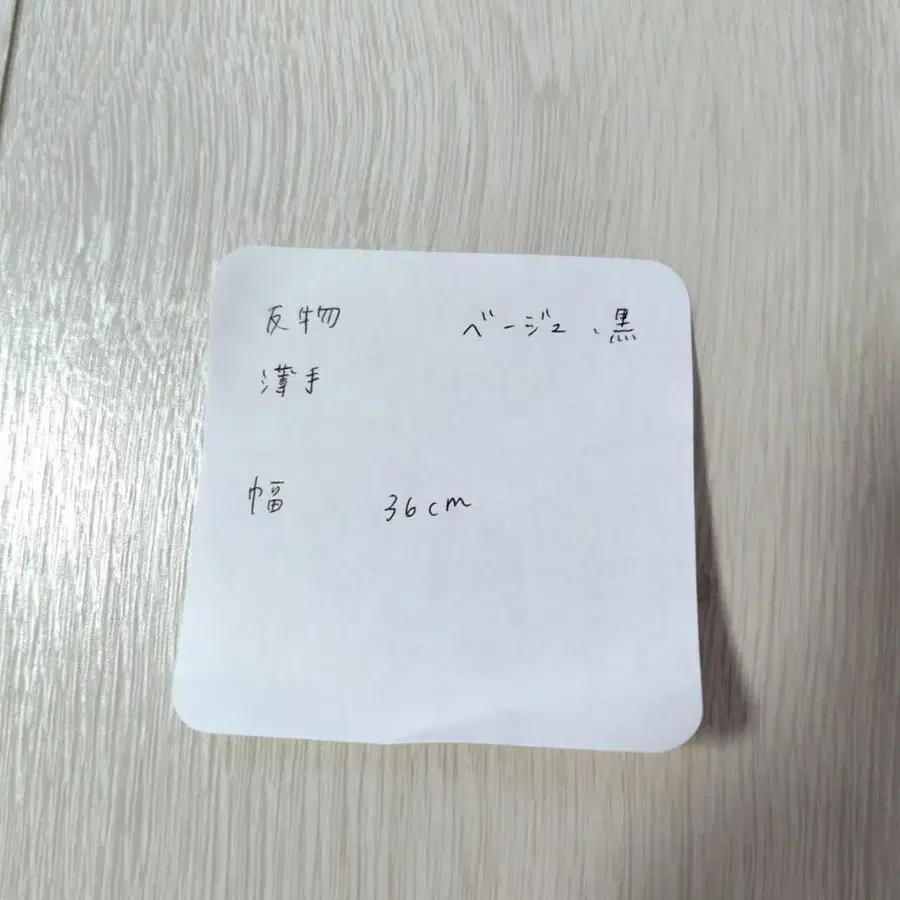 反物 ベージュ、黒
薄手
幅 36cm